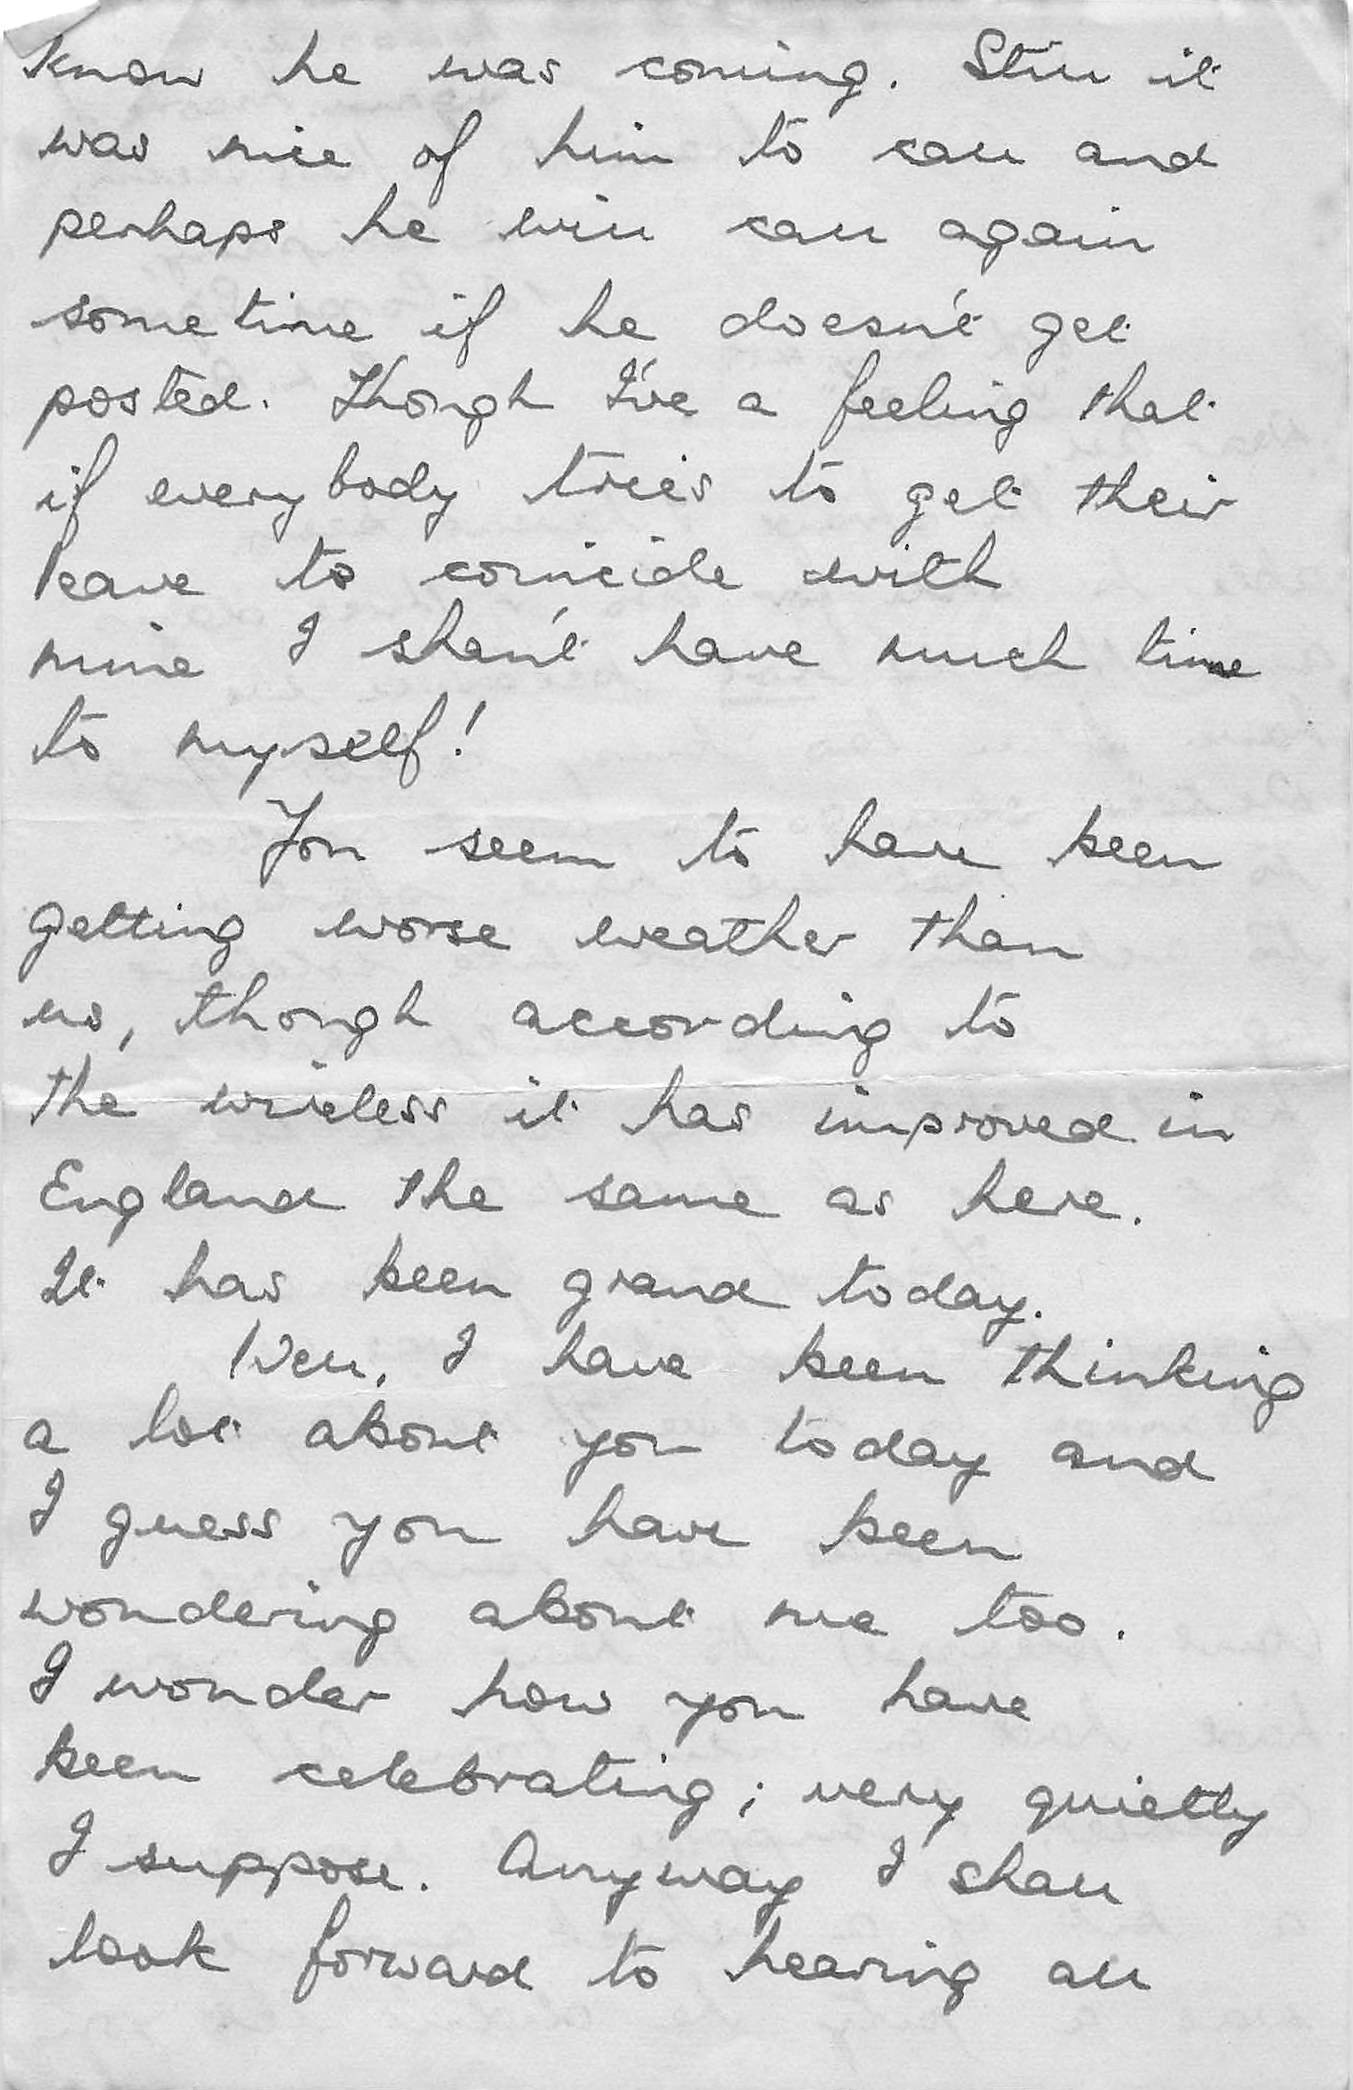 know he was coming. Still it
was nice of him to call and
perhaps he will call again
sometime if he doesn't get
posted. Though I've a feeling that
if everybody tries to get their
leave to coincide with
mine I shan't have much time
to myself!
You seem to have been
getting worse weather than
us, though according to
the wireless it has improved in
England the same as here.
It has been grand today.
Well, I have been thinking
a lot about you today and
I guess you have been
wondering about me too.
I wonder how you have
been celebrating; very quietly
I suppose. Anyway I shall
look forward to hearing all